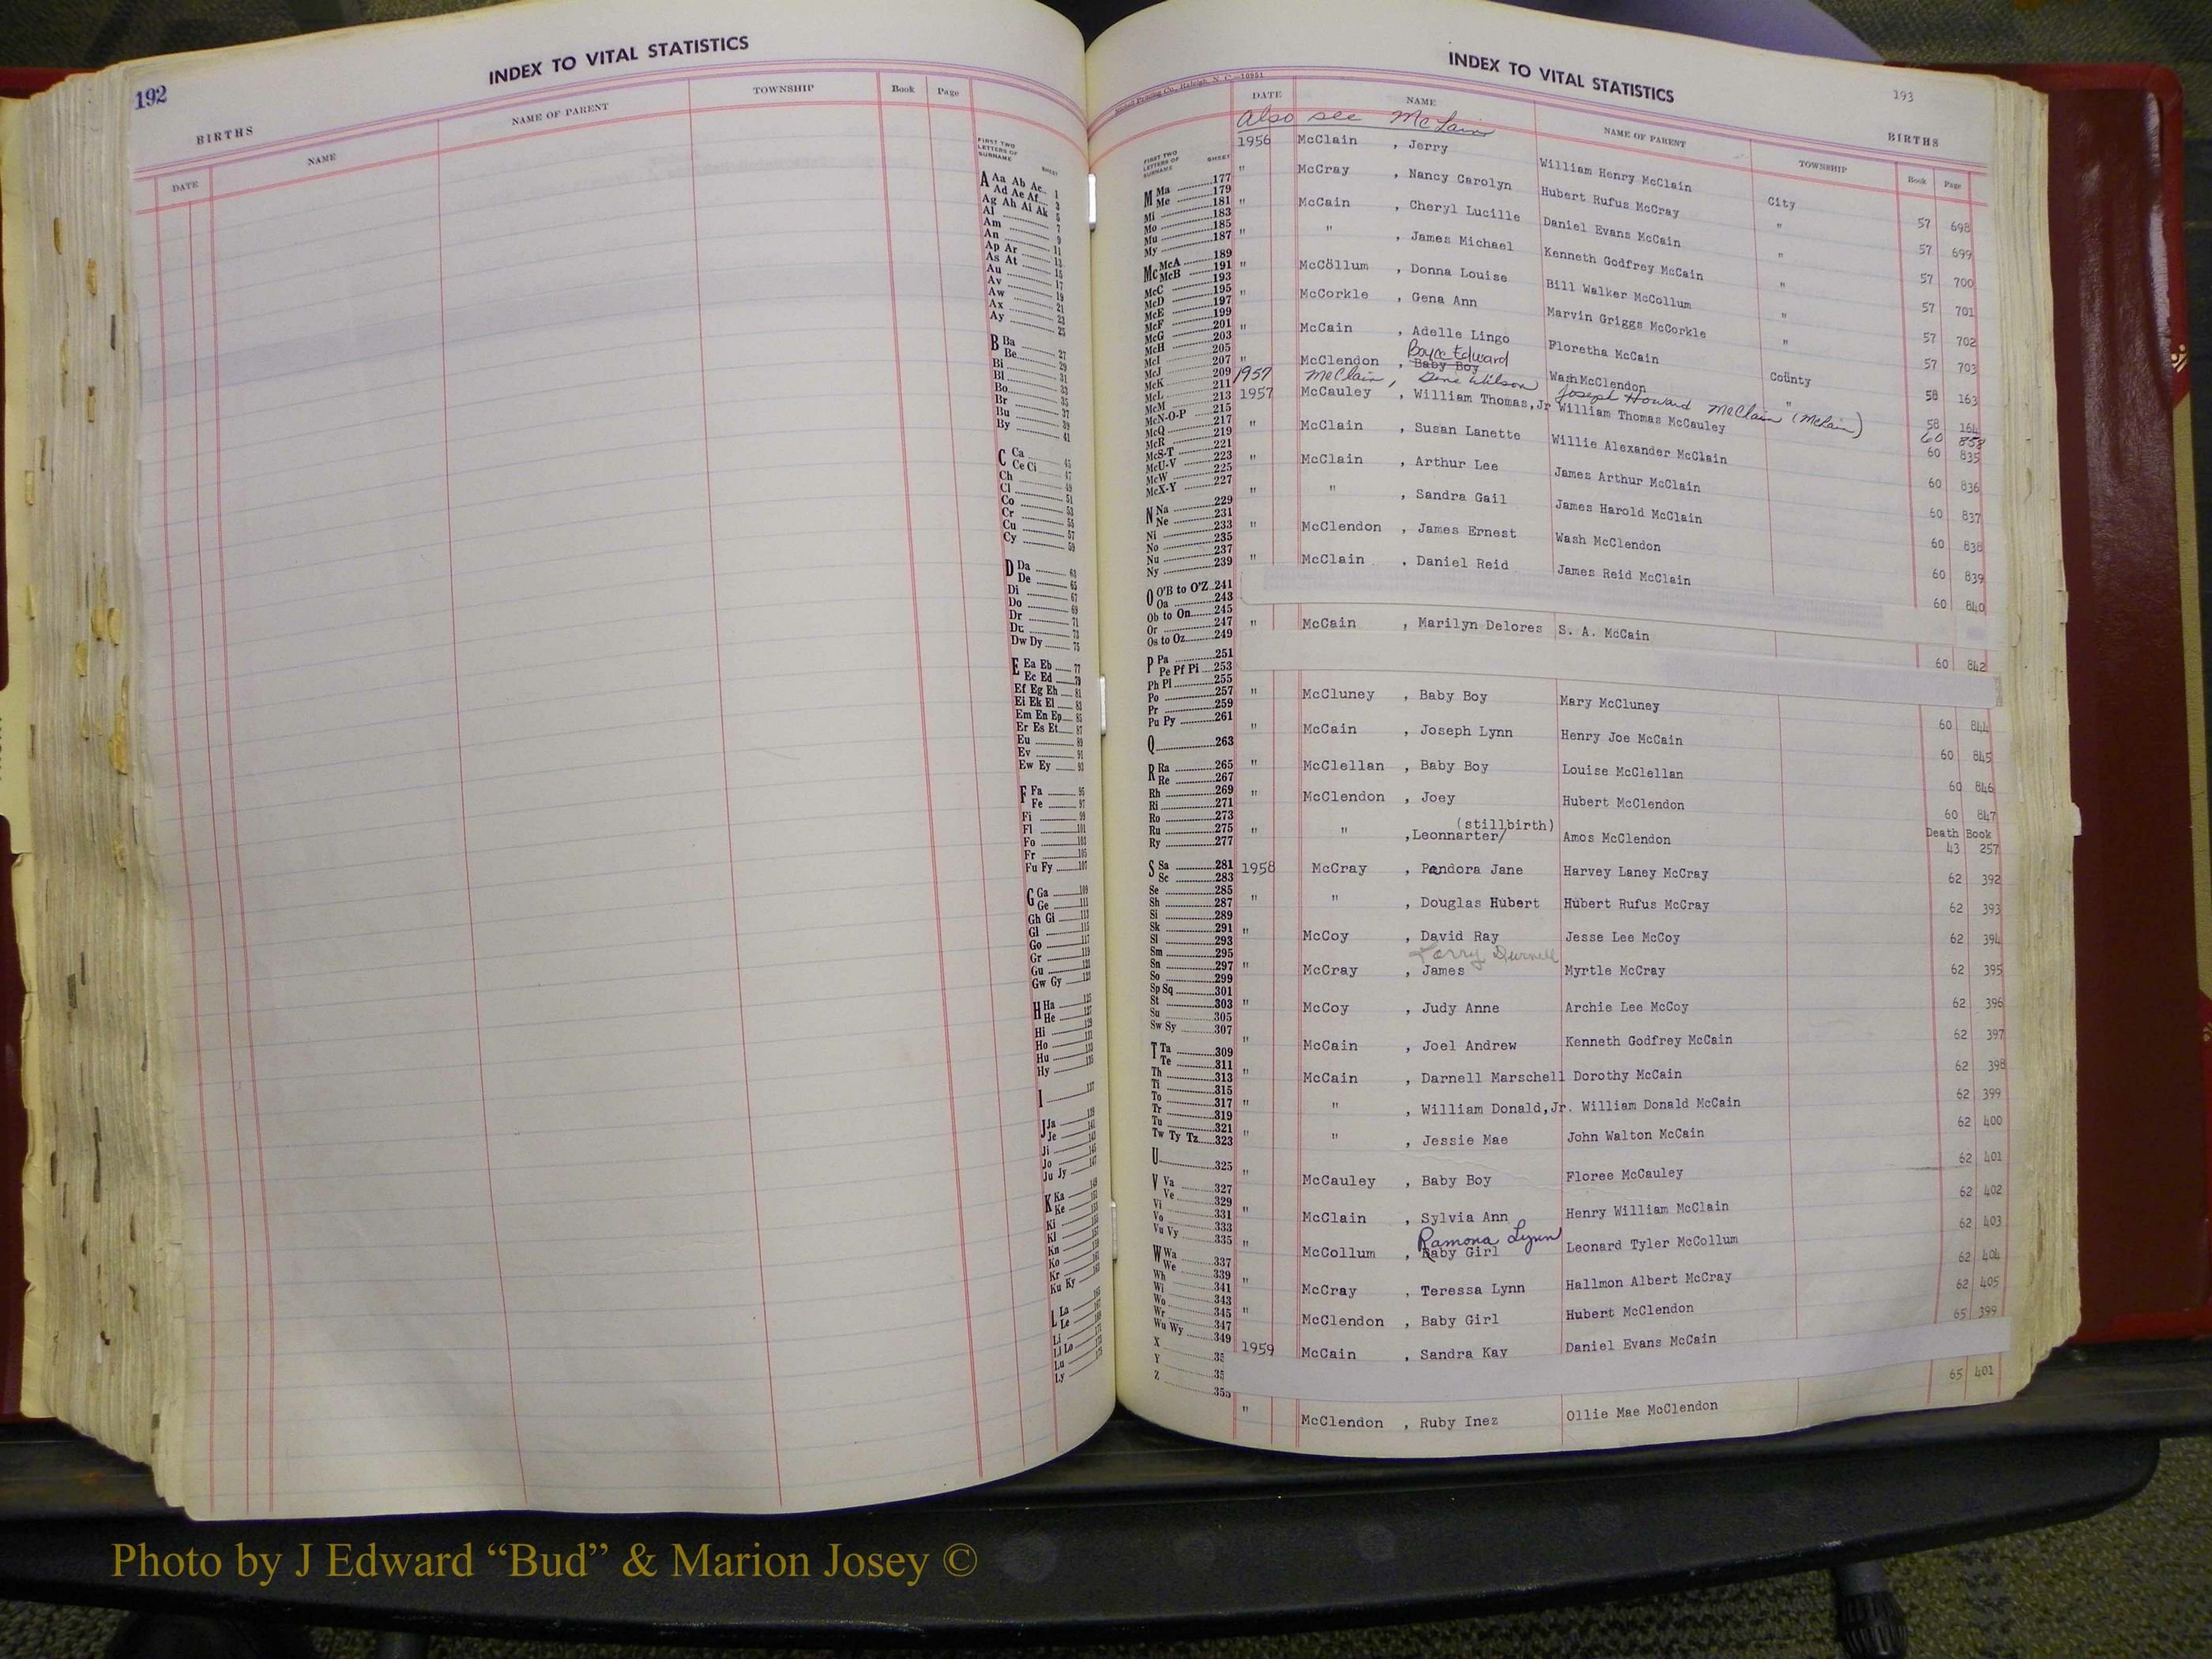 192
INDEX TO VITAL STATISTICS
BIRTHS
DATE NAME NAME OF PARENT TOWNSHIP Book Page
FIRST TWO
LETTERS OF
SURNAME SHEET
A Aa Ab Ac 1
Ad Ae Af 3
Ag Ah Ai Ak 5
Al 7
Am 9
An 11
Ap Ar 13
As At 15
Au 17
Av 19
Aw 21
Ax 23
Ay 25
B Ba 27
Be 29
Bi 29
Bl 31
Bo 33
Br 35
Bu 37
By 41
C Ca 45
Ce Ci 47
Ch 49
Cl 51
Co 53
Cr 55
Cu 57
Cy 59
D Da 63
De 65
Di 67
Do 69
Dr 71
Du 73
Dw Dy 75
E Ea Eb 77
Ec Ed 79
Ef Eg Eh 81
Ei Ek El 83
Em En Ep 85
Er Es Et 87
Eu 89
Ev 91
Ew Ey 93
F Fa 95
Fe 97
Fi 99
Fl 101
Fo 103
Fr 105
Fu Fy 107
G Ga 109
Ge 111
Gh Gi 113
Gl 115
Go 117
Gr 119
Gu 121
Gw Gy 123
H Ha 125
He
Hi
Ho
Hu
Hy
I
J Ja
Je
Ji
Jo
Ju Jy
K Ka
Ke
Ki
Kl
Kn
Ko
Kr
Ku Ky
L La
Le
Li
Ll Lo
Lu
Ly
INDEX TO VITAL STATISTICS
193
BIRTHS
DATE NAME NAME OF PARENT TOWNSHIP Book Page
FIRST TWO
LETTERS OF
SURNAME SHEET
M Ma 177
Me 179
Mi 181
Mo 183
Mu 185
My 187
Mc McA 189
McB 191
McC 193
McD 195
McE 197
McF 199
McG 201
McH 203
McI 205
McJ 207
McK 209
McL 211
McM 213
McN-O-P 215
McQ 217
McR 219
McS-T 221
McU-V 223
McW 225
McX-Y 227
N Na 229
Ne 231
Ni 233
No 235
Nu 237
Ny 239
O O'B to O'Z 241
Oa 243
Ob to On 245
Or 247
Os to Oz 249
P Pa 251
Pe Pf Pi 253
Ph Pl 255
Po 257
Pr 259
Pu Py 261
Q 263
R Ra 265
Re 267
Rh 269
Ri 271
Ro 273
Ru 275
Ry 277
S Sa 281
Sc 283
Se 285
Sh 287
Si 289
Sk 291
Sl 293
Sm 295
Sn 297
So 299
Sp Sq 301
St 303
Su 305
Sw Sy 307
T Ta 309
Te 311
Th 313
Ti 315
To 317
Tr 319
Tu 321
Tw Ty Tz 323
U 325
V Va 327
Ve 329
Vi 331
Vo 333
Vu Vy 335
W Wa 337
We 339
Wh 341
Wi 343
Wo 345
Wr 347
Wu Wy 349
X
Y
Z 355
Also see McLain
1956 McClain , Jerry William Henry McClain City 57 698
" McCray , Nancy Carolyn Hubert Rufus McCray " 57 699
" McCain , Cheryl Lucille Daniel Evans McCain " 57 700
" " , James Michael Kenneth Godfrey McCain " 57 701
" McCollum , Donna Louise Bill Walker McCollum " 57 702
" McCorkle , Gena Ann Marvin Griggs McCorkle " 57 703
" McCain , Adelle Lingo Floretha McCain County 58 163
Boyce Edward
" McClendon , Baby Boy Wash McClendon " 58 164
1957 McClain, Gene Wilson Joseph Howard McClain (McLain) 60 858
1957 McCauley , William Thomas,Jr William Thomas McCauley 60 835
" McClain , Susan Lanette Willie Alexander McClain 60 836
" McClain , Arthur Lee James Arthur McClain 60 837
" " , Sandra Gail James Harold McClain 60 838
" McClendon , James Ernest Wash McClendon 60 839
" McClain , Daniel Reid James Reid McClain 60 840
" McCain , Marilyn Delores S. A. McCain 60 842
" McCluney , Baby Boy Mary McCluney 60 844
" McCain , Joseph Lynn Henry Joe McCain 60 845
" McClellan , Baby Boy Louise McClellan 60 846
" McClendon , Joey Hubert McClendon 60 847
(stillbirth) Death Book
" " ,Leonnarter/ Amos McClendon 43 257
1958 McCray , Pandora Jane Harvey Laney McCray 62 392
" " , Douglas Hubert Hubert Rufus McCray 62 393
" McCoy , David Ray Jesse Lee McCoy 62 394
" McCray , James Myrtle McCray 62 395
" McCoy , Judy Anne Archie Lee McCoy 62 396
" McCain , Joel Andrew Kenneth Godfrey McCain 62 397
McCain , Darnell Marschell Dorothy McCain 62 398
" " , William Donald,Jr. William Donald McCain 62 399
" " , Jessie Mae John Walton McCain 62 400
" McCauley , Baby Boy Floree McCauley 62 401
" McClain , Sylvia Ann Henry William McClain 62 402
Ramona Lynn
" McCollum , Baby Girl Leonard Tyler McCollum 62 403
" McCray , Teressa Lynn Hallmon Albert McCray 62 404
" McClendon , Baby Girl Hubert McClendon 62 405
1959 McCain , Sandra Kay Daniel Evans McCain 65 399
" McClendon , Ruby Inez Ollie Mae McClendon 65 401
Photo by J Edward “Bud” & Marion Josey ©